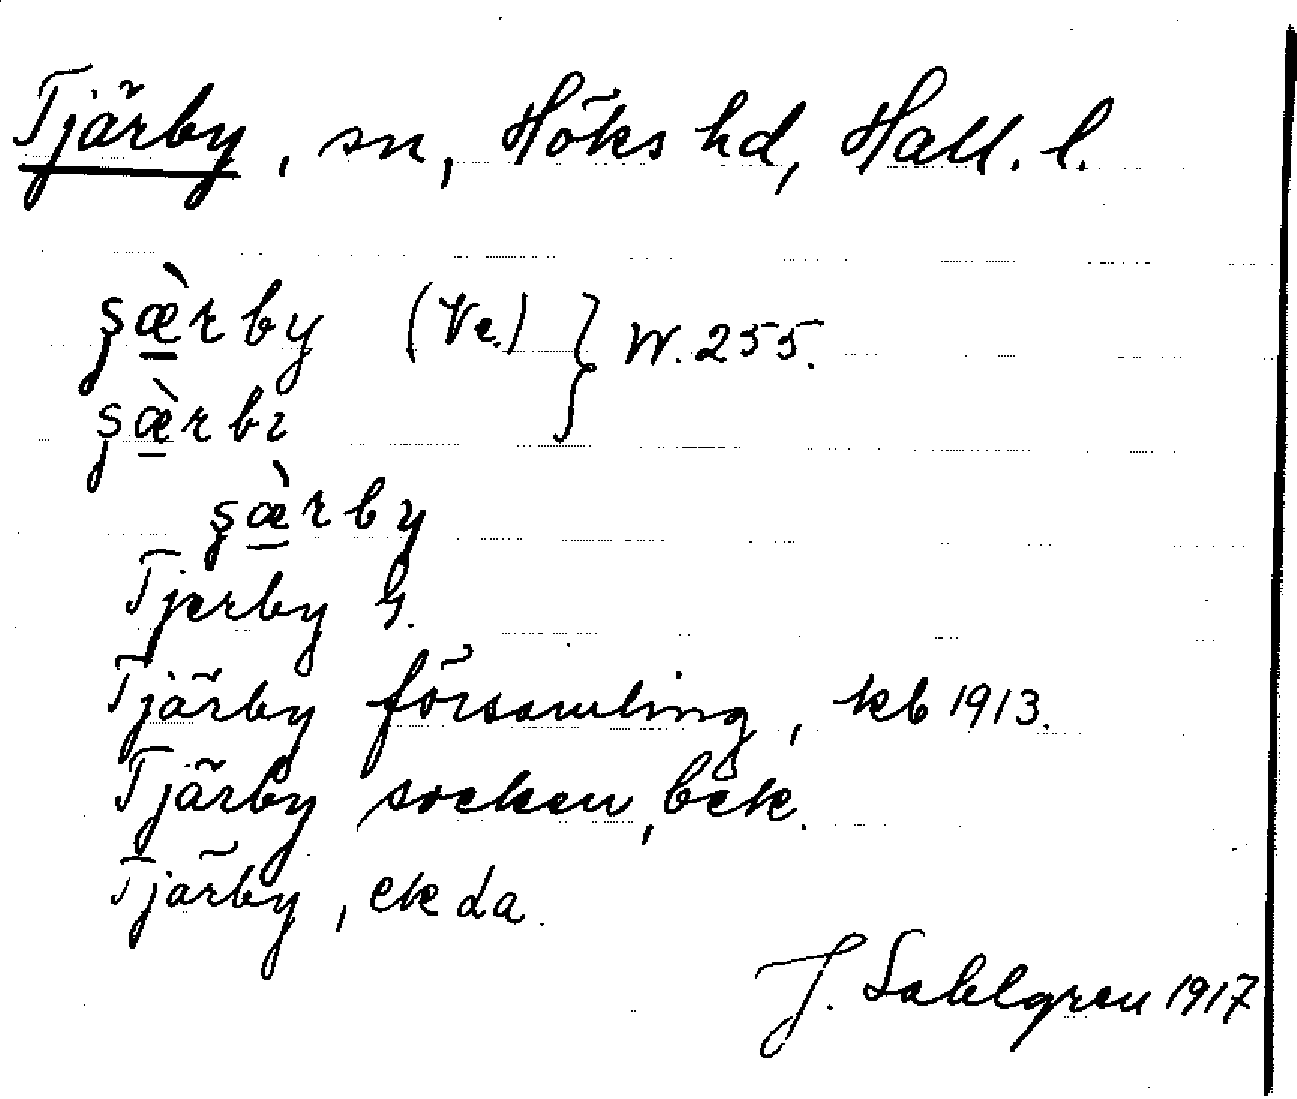 Tjärby, sn, Höks hd, Hall. l.
şæ̀rby (Ve.) } W. 255.
şæ̀rbı
şæ̀rby
Tjerby G.
Tjärby församling, kb 1913.
Tjärby socken, bek.
Tjärby, ek da.
J. Sahlgren 1917